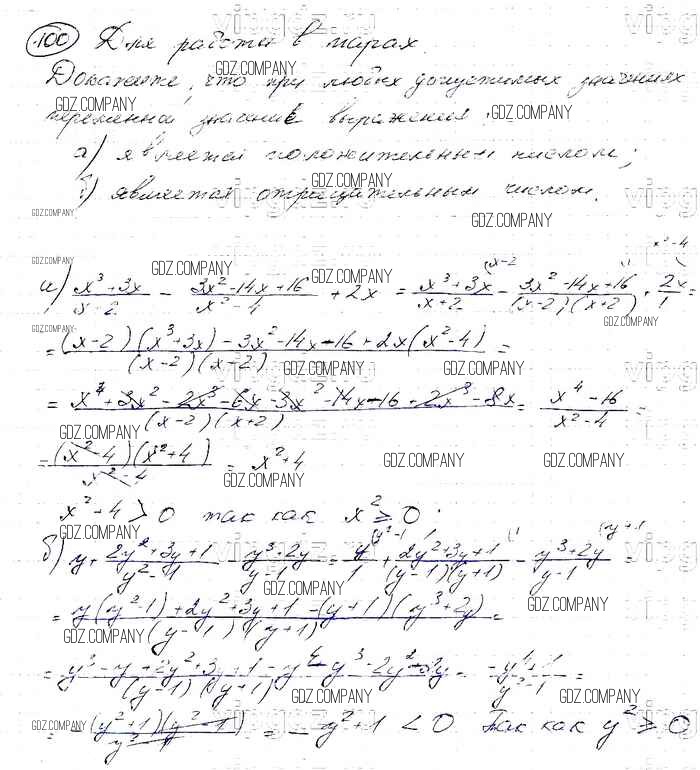 100 Для работы в парах.
Докажите, что при любых допустимых значениях
переменной значение выражения:
а) является положительным числом;
б) является отрицательным числом.
а) (x³+3x)/(x-2) - (3x²-14x+16)/(x²-4) + 2x = (x³+3x)/(x+2) - (3x²-14x+16)/((x-2)(x+2)) + 2x/1 =
= ((x-2)(x³+3x) - 3x²-14x-16+2x(x²-4))/((x-2)(x-2)) =
= (x⁴+3x²-2x³-6x-3x²-14x-16+2x³-8x)/((x-2)(x+2)) = (x⁴-16)/(x²-4) =
= ((x²-4)(x²+4))/(x²-4) = x²+4
x²+4 > 0 так как x² ≥ 0.
б) y + (2y²+3y+1)/(y²-1) - (y³+2y)/(y-1) = y/1 + (2y²+3y+1)/((y-1)(y+1)) - (y³+2y)/(y-1) =
= (y(y²-1)+2y²+3y+1-(y+1)(y³+2y))/((y-1)(y+1)) =
= (y³-y+2y²+3y+1-y⁴-y³-2y²-2y)/((y-1)(y+1)) = (-y⁴+1)/(y²-1) =
= -((y²+1)(y²-1))/(y²-1) = -y²+1 < 0 Так как y² ≥ 0
GDZ.COMPANY